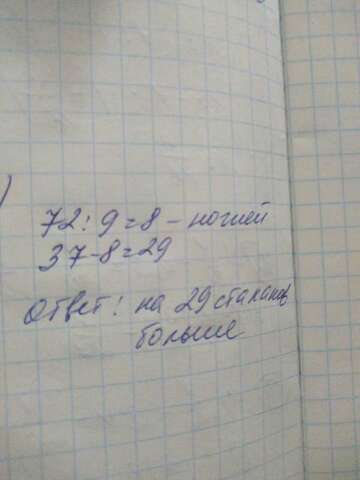 )
72 : 9 = 8 – ножей
37-8=29
Ответ: на 29 стаканов
больше